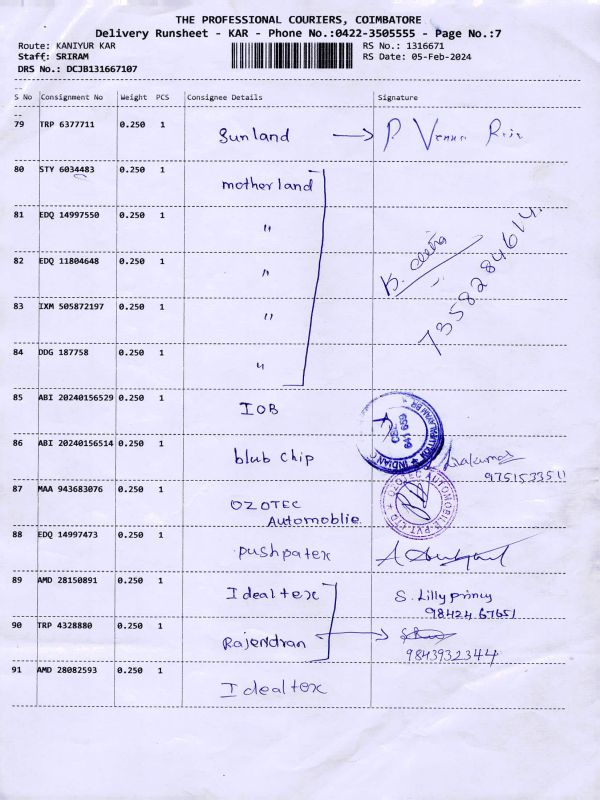 THE PROFESSIONAL COURIERS, COIMBATORE
Delivery Runsheet - KAR - Phone No.:0422-3505555 - Page No.:7
Route: KANIYUR KAR RS No.: 1316671
Staff: SRIRAM RS Date: 05-Feb-2024
DRS No.: DCJB131667107
S No Consignment No Weight PCS Consignee Details Signature
79 TRP 6377711 0.250 1 Sunland
80 STY 6034483 0.250 1 motherland
81 EDQ 14997550 0.250 1 "
82 EDQ 11804648 0.250 1 "
7358284614
83 IXM 505872197 0.250 1 "
84 DDG 187758 0.250 1 "
85 ABI 20240156529 0.250 1 IOB
86 ABI 20240156514 0.250 1 blub chip
9751533511
87 MAA 943683076 0.250 1 OZOTEC
Automoblie.
OZOTEC AUTOMOBILE PVT LTD
88 EDQ 14997473 0.250 1 pushpatex
89 AMD 28150891 0.250 1 Idealtex S. Lilly princy
98424 67651
90 TRP 4328880 0.250 1 Rajendran
9843932344
91 AMD 28082593 0.250 1 Idealtex